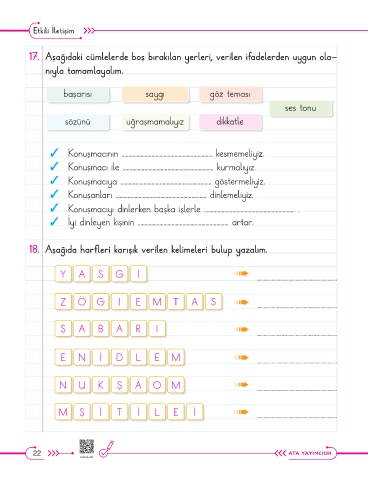 Etkili İletişim
17. Aşağıdaki cümlelerde boş bırakılan yerleri, verilen ifadelerden uygun ola-
nıyla tamamlayalım.
başarısı saygı göz teması
ses tonu
sözünü uğraşmamalıyız dikkatle
Konuşmacının kesmemeliyiz.
Konuşmacı ile kurmalıyız.
Konuşmacıya göstermeliyiz.
Konuşanları dinlemeliyiz.
Konuşmacıyı dinlerken başka işlerle .
İyi dinleyen kişinin artar.
18. Aşağıda harfleri karışık verilen kelimeleri bulup yazalım.
Y A S G I
Z Ö G I E M T A S
Ş A B A R I
E N İ D L E M
N U K Ş A O M
M S İ T İ L E İ
22
ATA YAYINCILIK